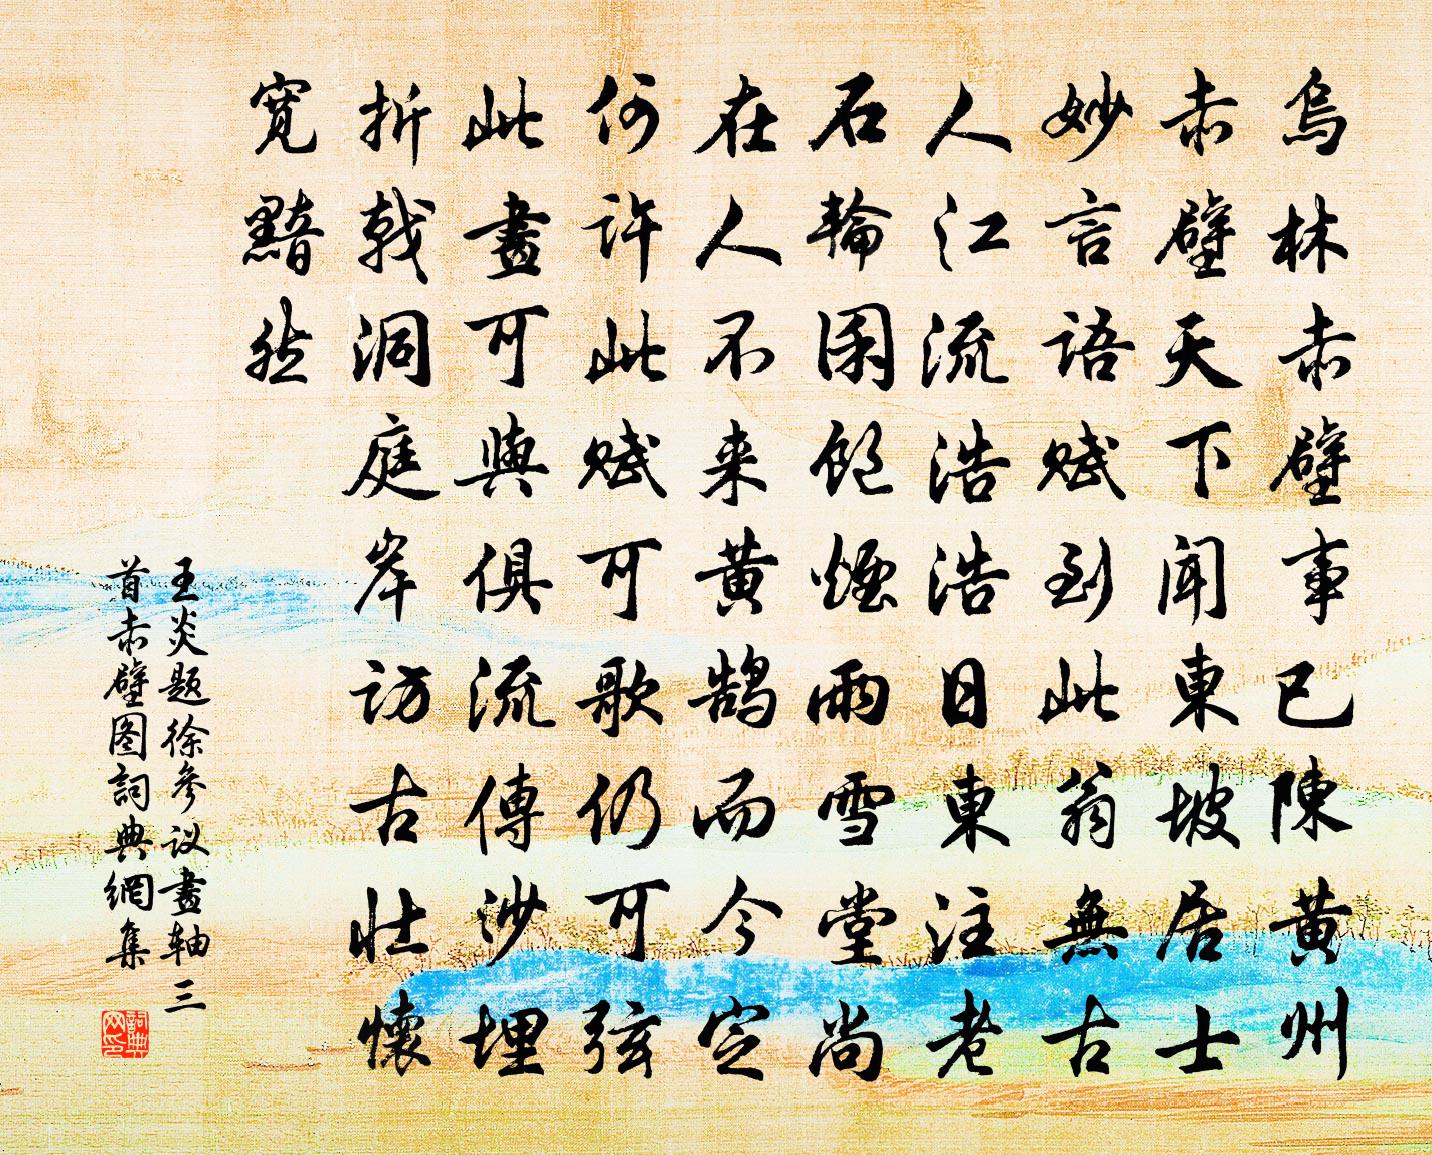 烏林赤壁事已陳黃州
赤壁天下聞東坡居士
妙言語賦到此翁無古
人江流浩浩日東注老
石輪囷飽煙雨雪堂尚
在人不来黃鵠而今定
何許此賦可歌仍可弦
此畫可與俱流傳沙埋
折戟洞庭岸訪古壯懷
寬黯然
王炎题徐参议畫轴三
首赤壁图詞典網集
詞典
网印